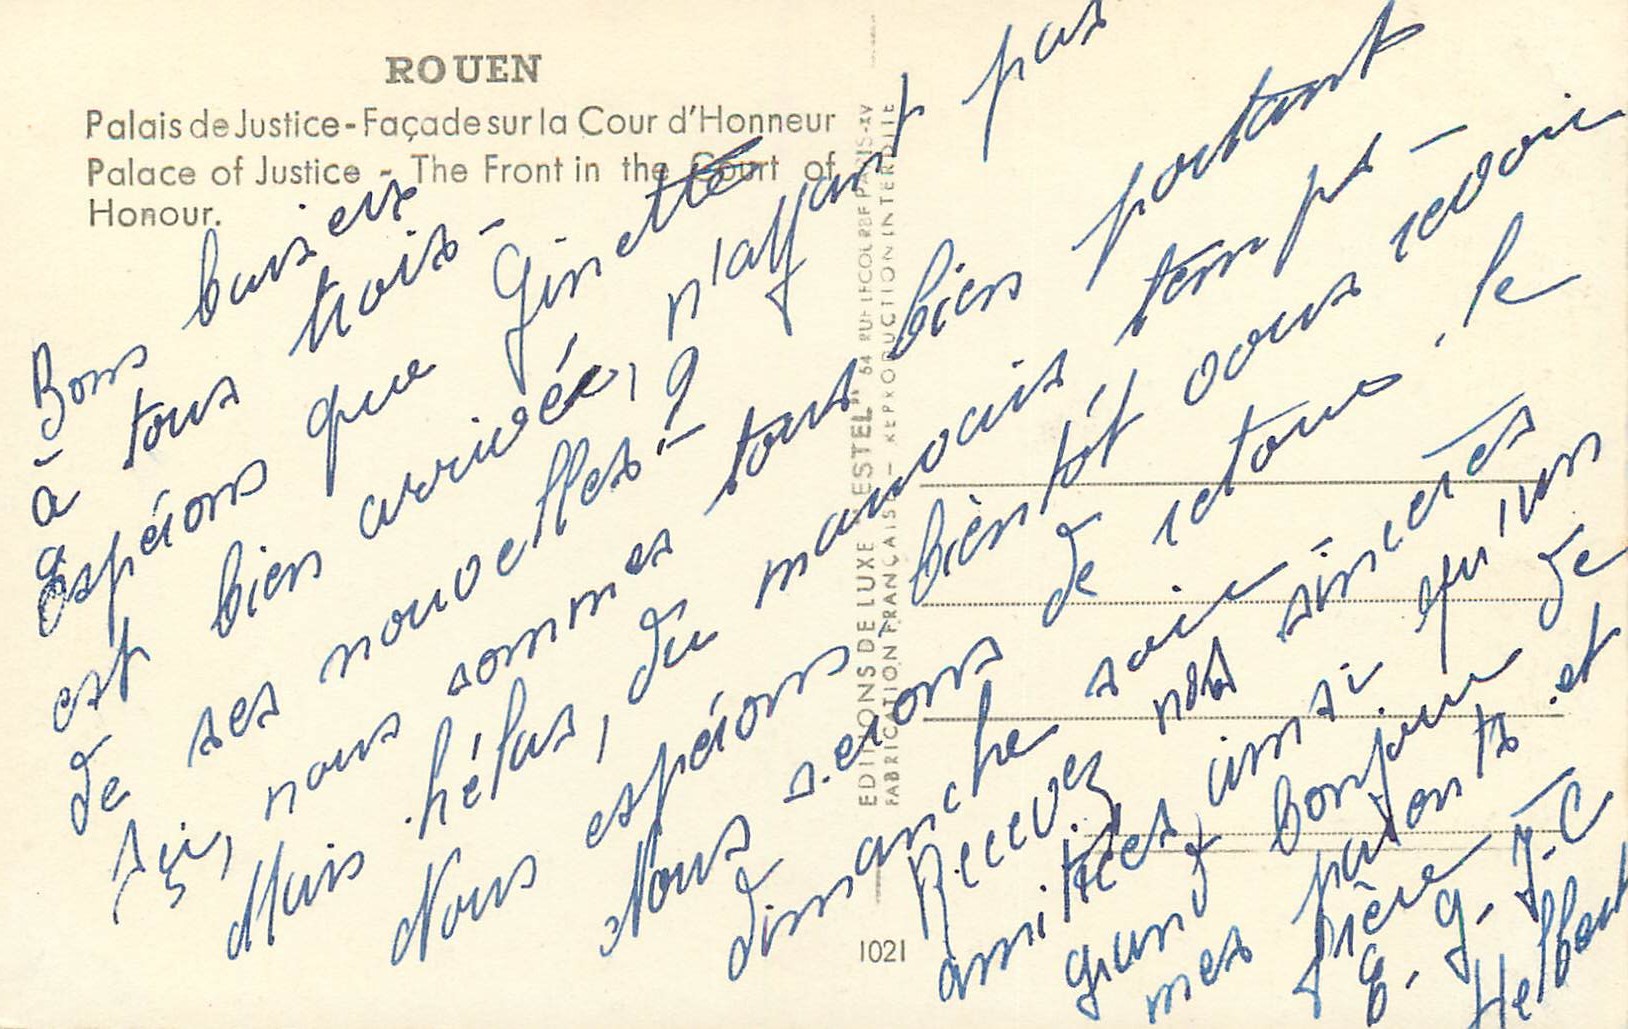 ROUEN
Palais de Justice - Façade sur la Cour d'Honneur
Palace of Justice - The Front in the Court of
Honour.
Bons baisers
à tous trois -
Espérons que Ginette
est bien arrivée, n'ayant pas
de ses nouvelles - ?
Içi, nous sommes tous bien portant
Mais hélas, du mauvais temps -
Nous espérons bientôt vous revoir
Nous serons de retour, le
dimanche soir
Recevez nos sincères
amitiées, ainsi qu'un
grand bonjour de
mes parents et
frère
E. G. J-C
EDITIONS DE LUXE "ESTEL" 54 RUE LECOURBE PARIS-XV
FABRICATION FRANÇAISE - REPRODUCTION INTERDITE
1021